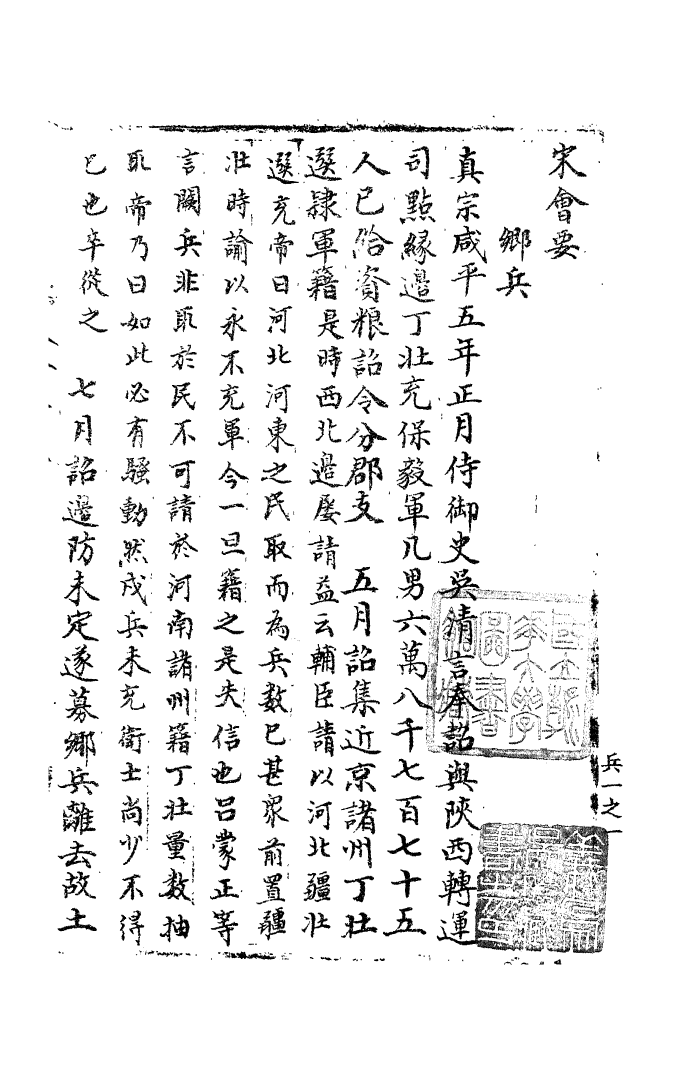 宋會要
鄉兵
真宗咸平五年正月侍御史吳蒨言奉詔與陝西轉運
司點緣邊丁壯充保毅軍凡男六萬八千七百七十五
人已給資粮詔令分郡支　五月詔集近京諸州丁壯
選隸軍籍是時西北邊屢請益云輔臣請以河北疆壯
選充帝曰河北河東之民取而為兵數已甚眾前置疆
壯時諭以永不充軍今一旦籍之是失信也呂蒙正等
言闕兵非取於民不可請於河南諸州籍丁壯量數抽
取帝乃曰如此必有騷動然戍兵未充衛士尚少不得
已也卒從之　七月詔邊防未定遂募鄉兵離去故土
兵一之一